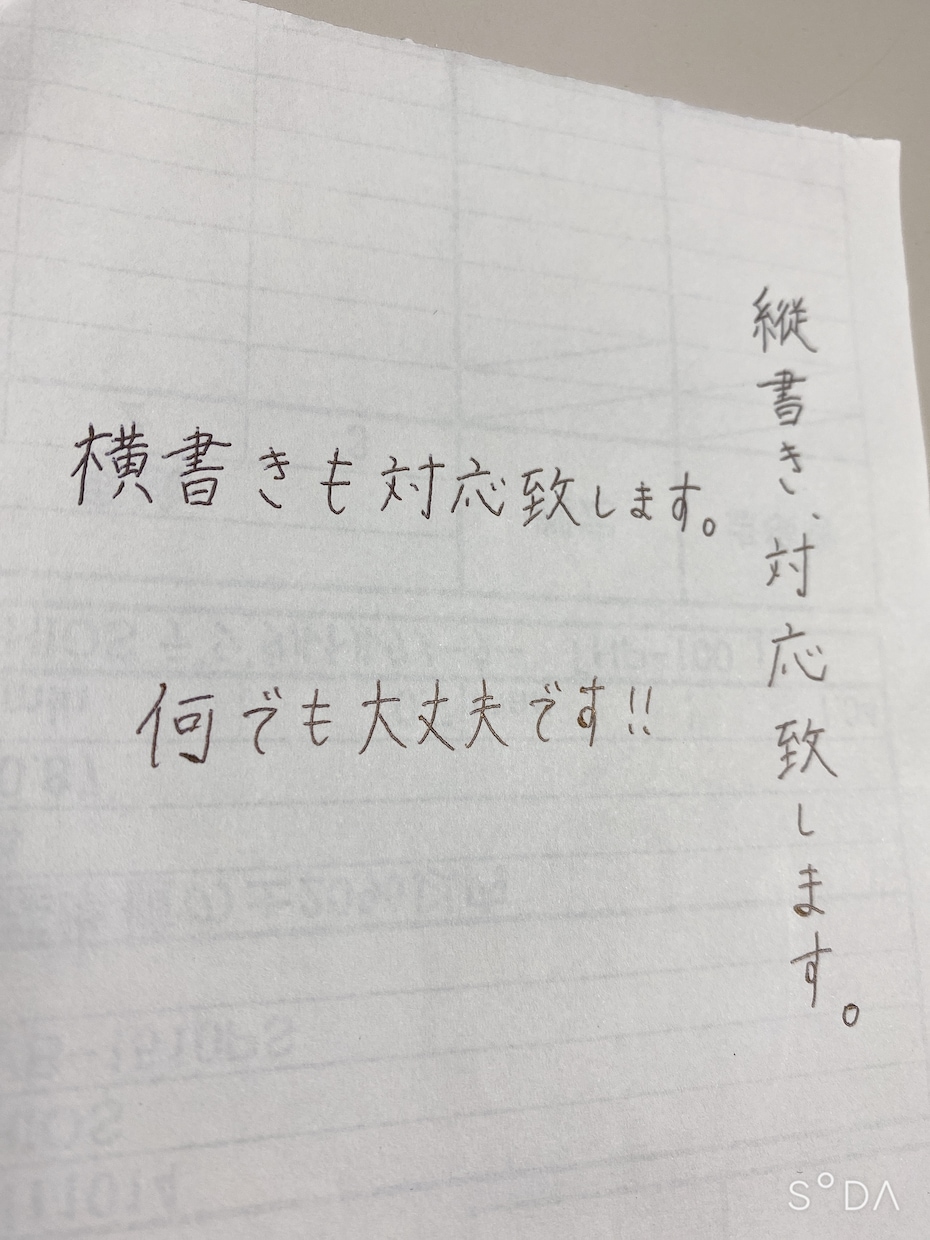 縦書き、対応致します。
横書きも対応致します。
何でも大丈夫です!!
SODA